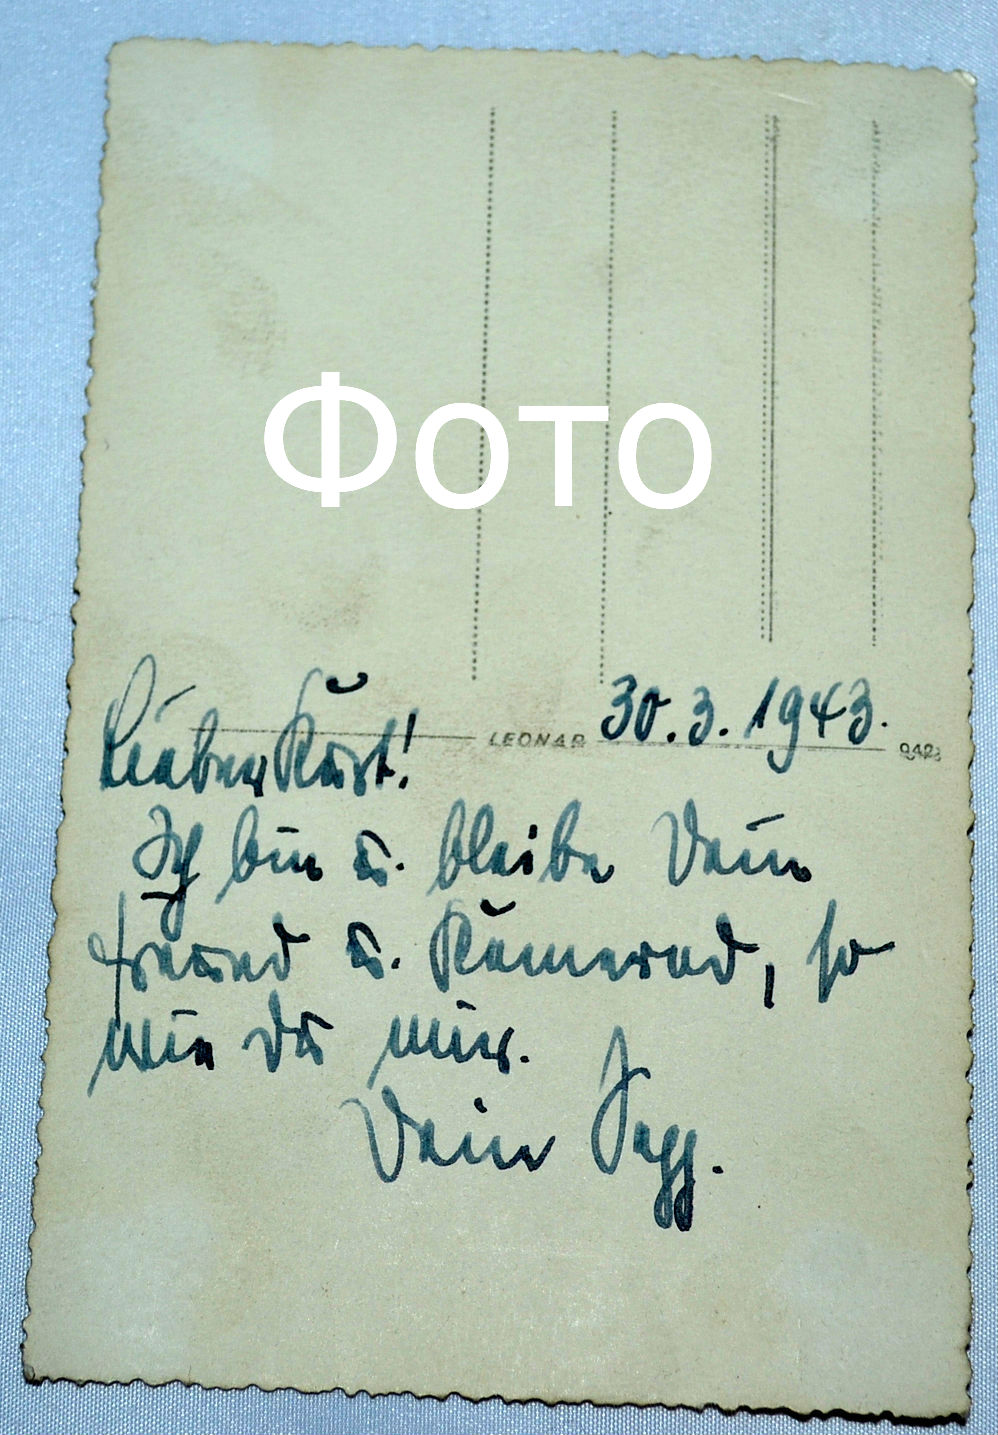 Фото
30.3.1943.
LEONAR
Lieber Kurt!
Ich bin u. bleibe Dein
Freund u. Kamerad, so
wie du mir.
Dein Sepp.